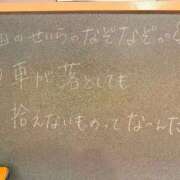 のせいらのなぞなぞ
車が落としても
拾えないものってなーんだ